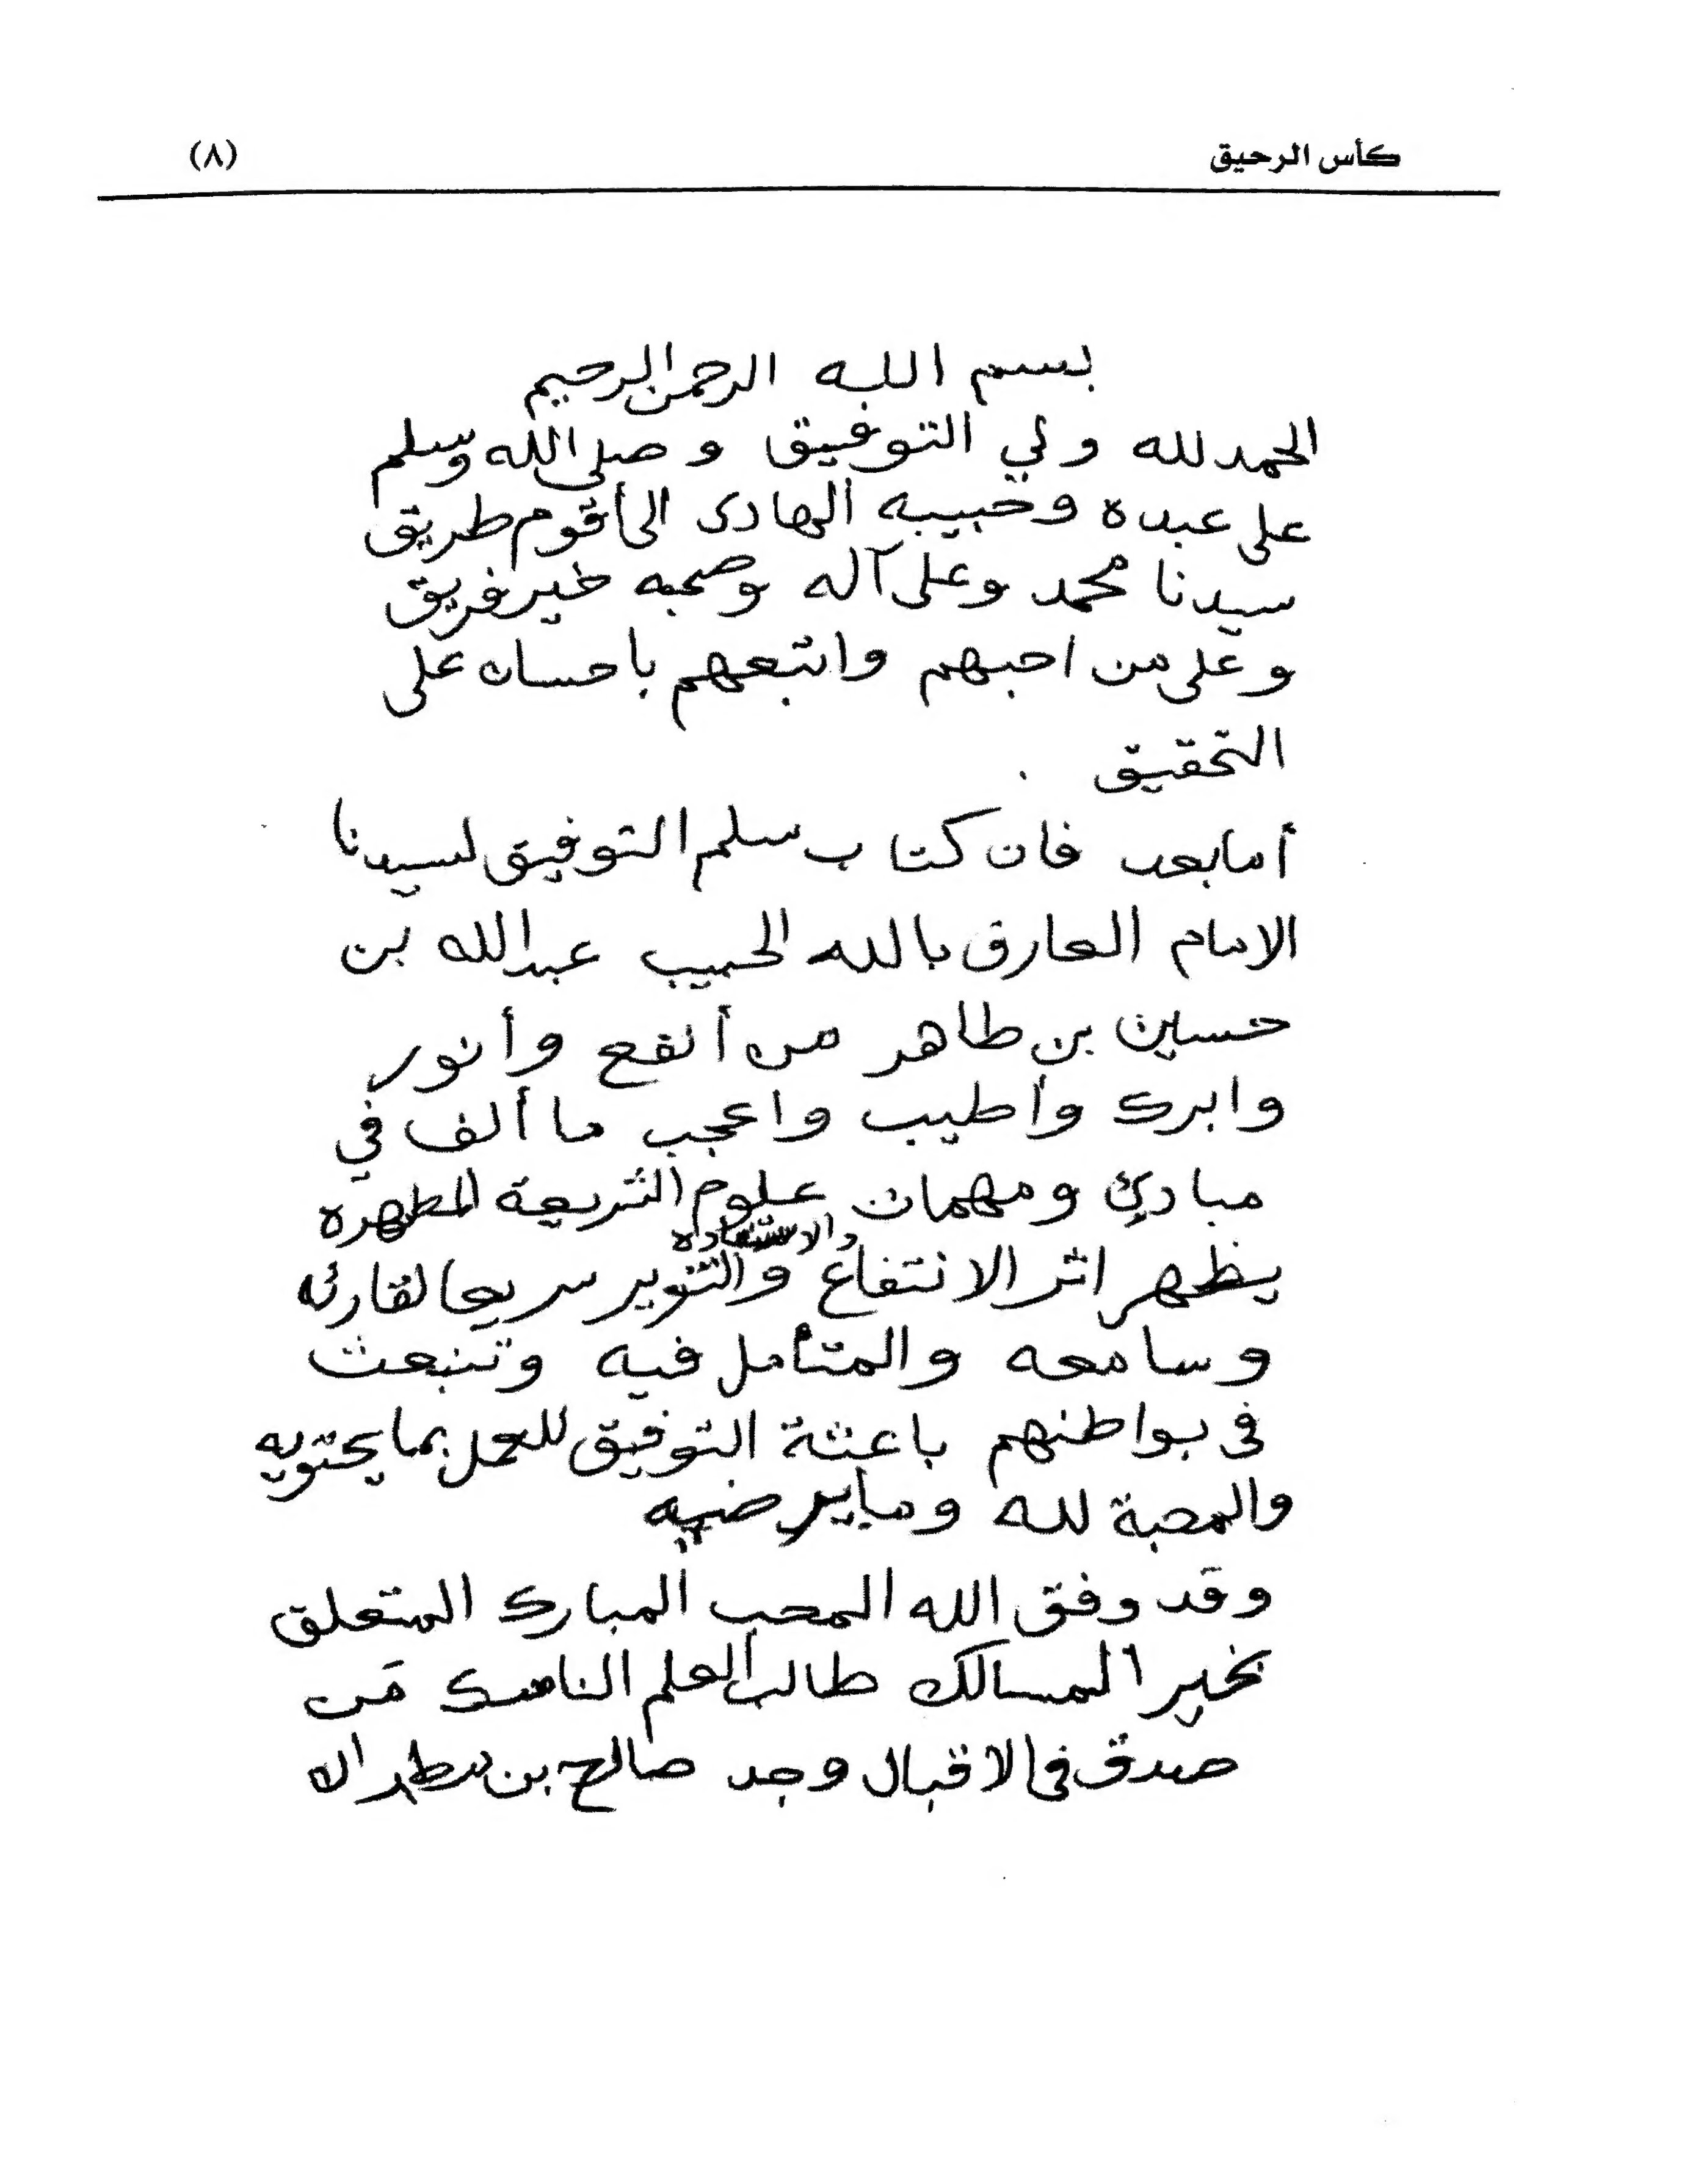 كأس الرحيق (٨)
بسم الله الرحمن الرحيم
الحمد لله ولي التوفيق و صلى الله وسلم
على عبده وحبيبه الهادى الى أقوم طريق
سيدنا محمد وعلى آله وصحبه خير فريق
وعلى من احبهم واتبعهم باحسان على
التحقيق .
أما بعد فان كتاب سلم التوفيق لسيدنا
الامام العارف بالله الحبيب عبدالله بن
حسين بن طاهر من أنفع وأنور
وابرك وأطيب واعجب ما ألف في
مبادئ ومهمات علوم الشريعة المطهره
والاستفاده
يظهر اثر الانتفاع والتنوير سريعا لقارئه
وسامعه والمتأمل فيه وتنبعث
فى بواطنهم باعثة التوفيق للعمل بما يحتويه
والمحبة لله وما يرضيه
وقد وفق الله المحب المبارك المتعلق
بخير المسالك طالب العلم الناسك من
صدق في الاقبال وجد صالح بن